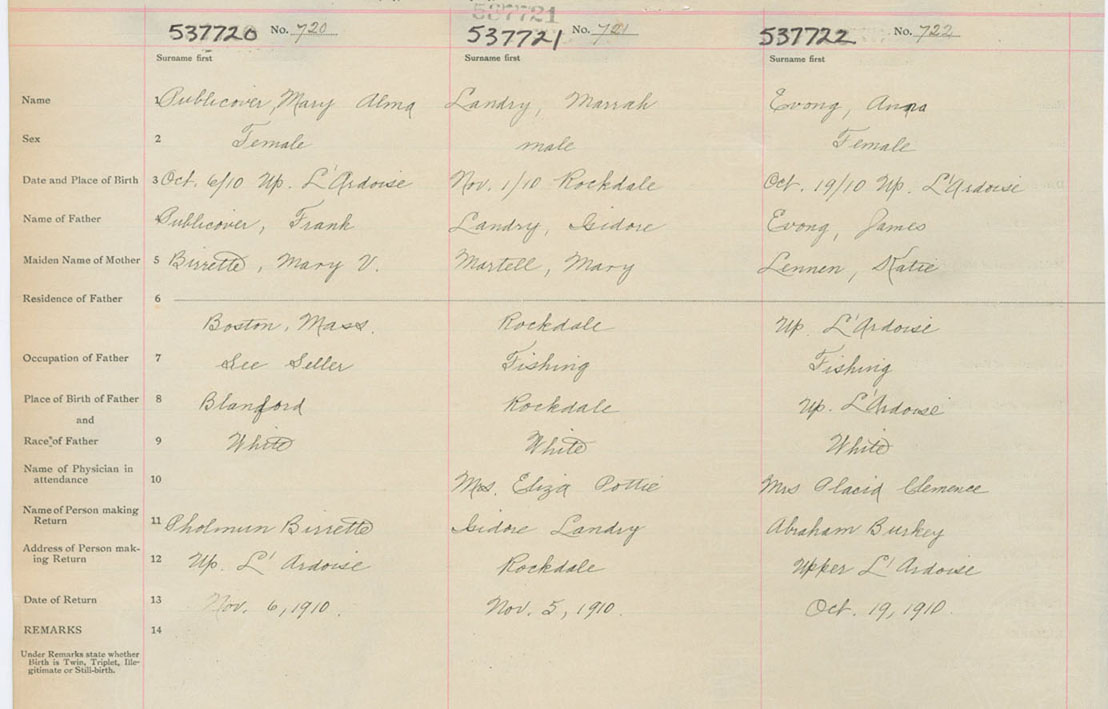 537721
537720 No. 720 537721 No. 721 537722 No. 722
Surname first Surname first Surname first
Name 1 Publicover, Mary Alma Landry, Marrah Evong, Anna
Sex 2 Female male Female
Date and Place of Birth 3 Oct. 6/10 Up. L'Ardoise Nov. 1/10 Rockdale Oct. 19/10 Up. L'Ardoise
Name of Father 4 Publicover, Frank Landry, Isidore Evong, James
Maiden Name of Mother 5 Birrette, Mary V. Martell, Mary Lennen, Katie
Residence of Father 6
Boston, Mass. Rockdale Up. L'Ardoise
Occupation of Father 7 See Seller Fishing Fishing
Place of Birth of Father 8 Blanford Rockdale Up. L'Ardoise
and
Race of Father 9 White White White
Name of Physician in
attendance 10 Mrs. Eliza Pottie Mrs Placid Clemence
Name of Person making
Return 11 Pholmun Birrette Isidore Landry Abraham Burkey
Address of Person mak-
ing Return 12 Up. L'Ardoise Rockdale Upper L'Ardoise
Date of Return 13 Nov. 6, 1910. Nov. 5, 1910. Oct. 19, 1910
REMARKS 14
Under Remarks state whether
Birth is Twin, Triplet, Ille-
gitimate or Still-birth.